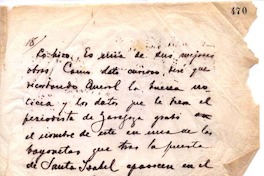 470
18/
lo hizo. Es una de sus mejores
obras. Como dato curioso, diré que
recordando Querol la buena no-
ticia y los datos que le trea el
periodista de Zaragoza grabó
el nombre de este en una de las
bayonetas que tras la puerta
de Santa Isabel aparecen en el